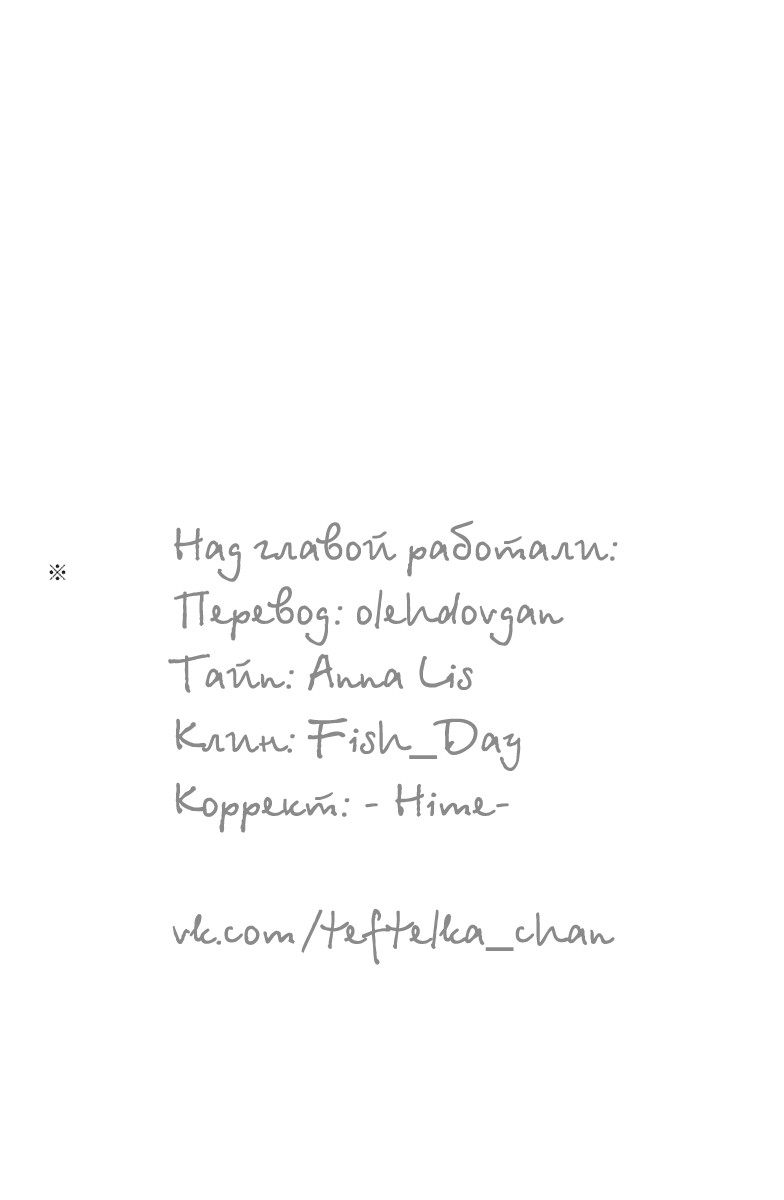 Над главой работали:
※
Перевод: olehdovgan
Тайп: Anna Lis
Клин: Fish_Day
Коррект: - Hime-
vk.com/teftelka_chan